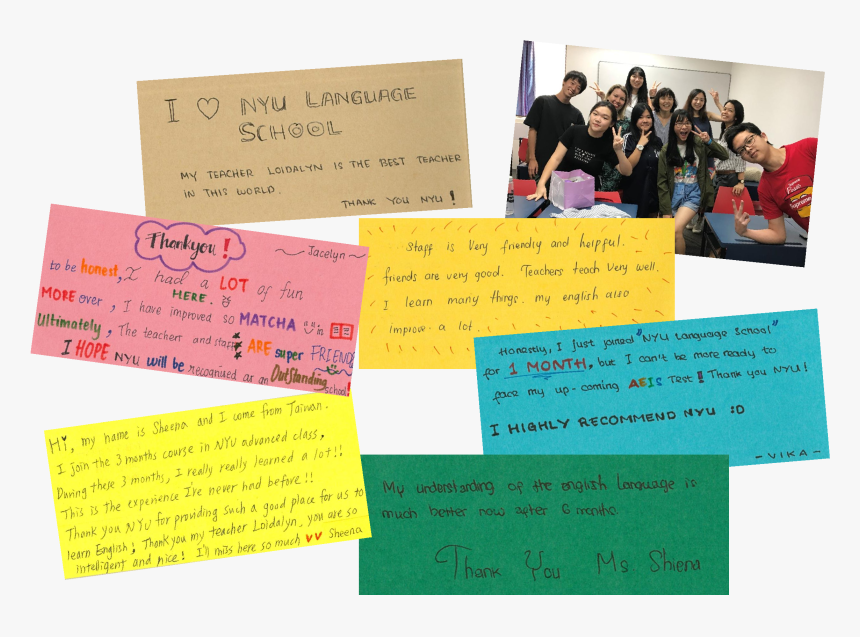 I ♡ NYU LANGUAGE
SCHOOL
MY TEACHER LOIDALYN IS THE BEST TEACHER
IN THIS WORLD.
THANK YOU NYU !
Thankyou !
~ Jacelyn ~
to be honest, I had a LOT of fun
HERE.
MORE over , I have improved so MATCHA in
Ultimately , The teachers and staffs ARE super FRIENDLY
I HOPE NYU will be recognised as an OutStanding
school!
Staff is very friendly and helpful.
friends are very good. Teachers teach very well.
I learn many things. my english also
improve a lot.
Honestly, I just joined "NYU Language School"
for 1 MONTH, but I can't be more ready to
face my up-coming AEIS Test! Thank you NYU!
I HIGHLY RECOMMEND NYU :D
- VIKA -
Hi, my name is Sheena and I come from Taiwan.
I join the 3 months course in NYU advanced class,
During these 3 months, I really really learned a lot!!
This is the experience I're never had before!!
Thank you NYU for providing such a good place for us to
learn English; Thank you my teacher Loidalyn, you are so
intelligent and nice! I'll miss here so much ♥♥ Sheena
My understanding of the english language is
much better now after 6 months.
Thank You Ms Shiena